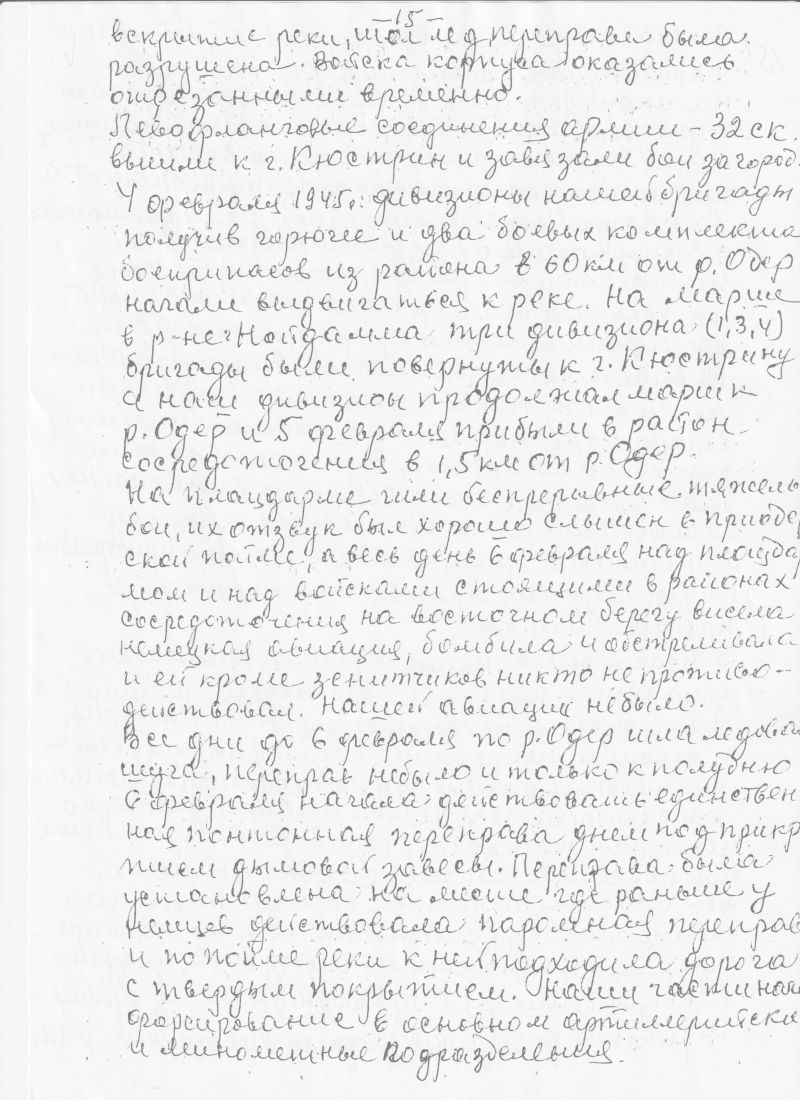 -15-
вскрытие реки, шол лед переправа была
разрушена. Войска корпуса оказались
отрезанными временно.
Левофланговые соединения армии - 32 ск.
вышли к г. Кюстрин и завязали бои за город.
4 февраля 1945г. дивизионы нашей бригады
получив горючее и два боевых комплекта
боеприпасов из района в 60 км от р. Одер
начали выдвигаться к реке. На марше
в р-не Нойдамма три дивизиона (1,3,4)
бригады были повернуты к г. Кюстрину
а наш дивизион продолжал марш к
р. Одер и 5 февраля прибыли в район
сосредоточения в 1,5 км от р. Одер.
На плацдарме шли беспрерывные тяжелы
бои, их отзвук был хорошо слышен в приоде
ской пойме, а весь день 6 февраля над плацдар
мом и над войсками стоящими в районах
сосредоточения на восточном берегу висела
немецкая авиация, бомбила и обстреливала
и ей кроме зенитчиков никто не противо-
действовал. Нашей авиации небыло.
Все дни до 6 февраля по р. Одер шла ледовая
шуга, переправ небыло и только к полудню
6 февраля начала действовать единствен
ная понтонная переправа днем под прикр
тием дымовой завесы. Переправа была
установлена на месте где раньше у
немцев действовала паромная переправ
и по пойме реки к ней подходила дорога
с твердым покрытием. Наши части
форсирование в основном артиллерийски
и минометные подразделения.